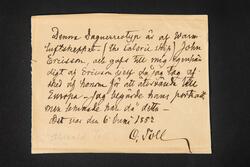 Denna Daguerreotyp är af Warm
luftskeppet - (the Calorie ship) John
Ericsson, och gafs till mig
af Ericsson sjelf då jag tog af
sked af honom för att återvända till
Europa - Jag begärde hans porträtt
men han
Det var den 6 Juni 1852
O. Toll